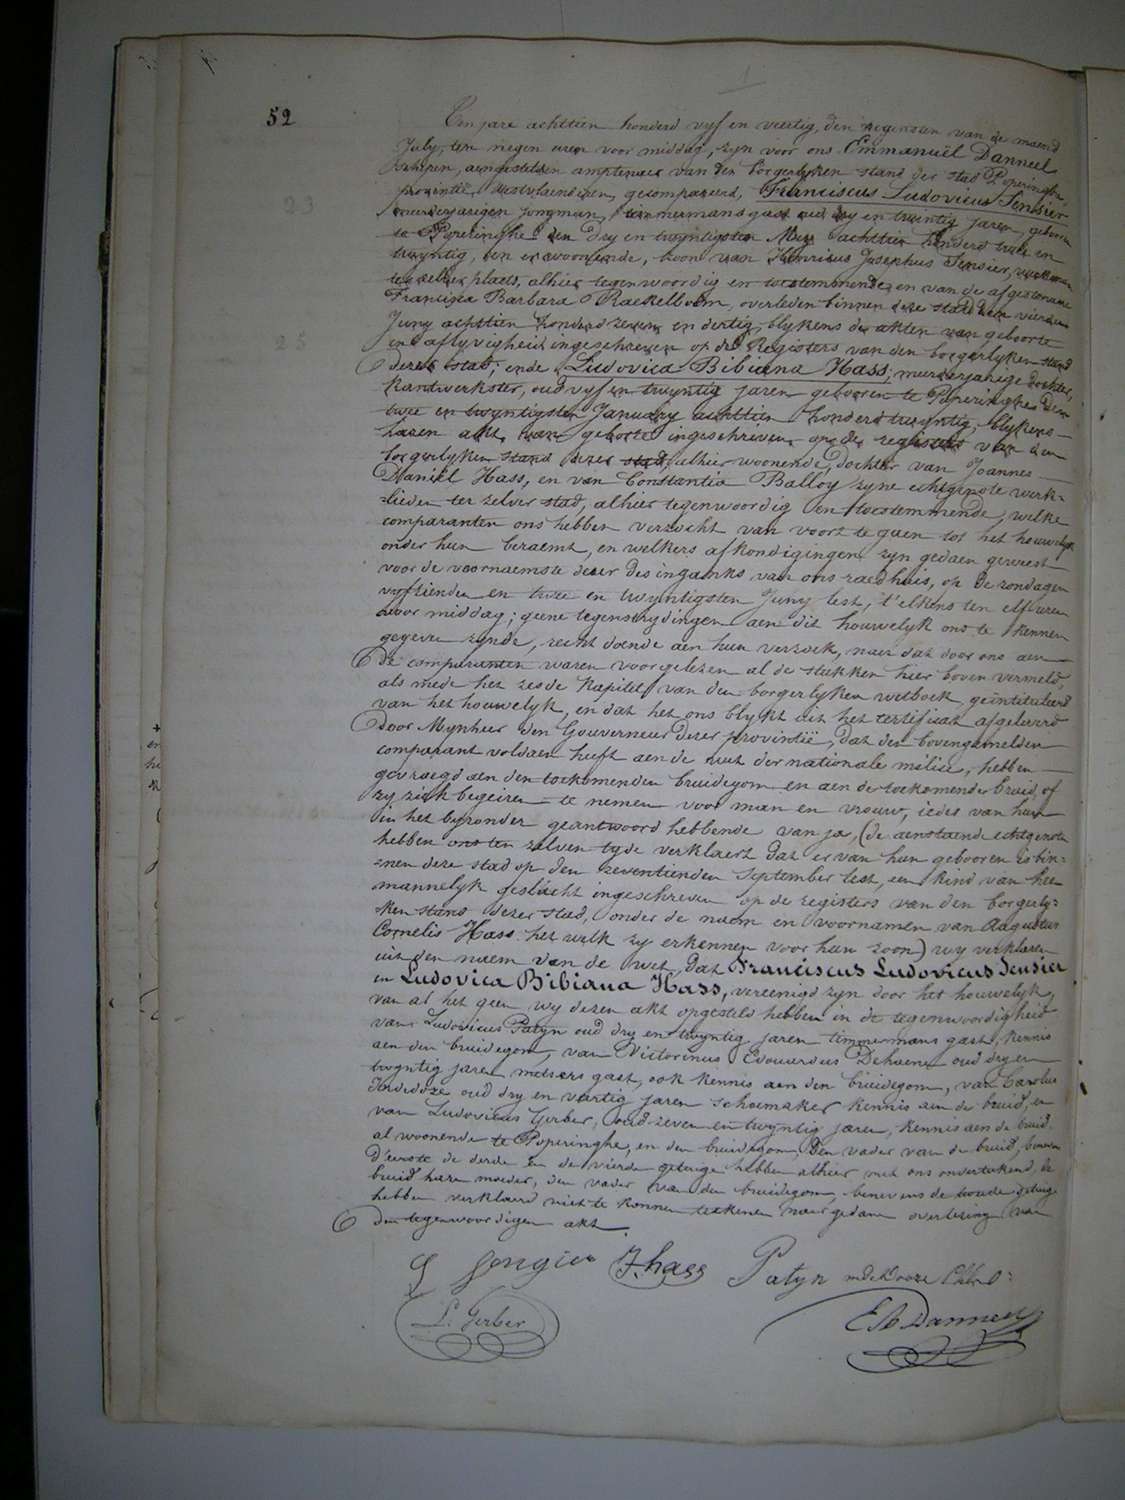 52
Ten jare achttien honderd vyf en veertig, den negensten van de maend
July, ten negen uren voor middag, zyn voor ons Emmanuël Danneel
schepen, aengestelden amptenaer van den borgerlyken stand der stad Poperinghe,
provintie Westvlaenderen, gecompareerd, Franciscus Ludovicus Sensier
meerderjarigen jongman, timmermans gast oud dry en twintig jaren, geboren
te Poperinghe den dry en twyntigsten Mey achttien honderd twee en
twyntig, en er woonende, zoon van Henricus Josephus Sensier, werkman
ter zelver plaets, alhier tegenwoordig en toestemmende, en van de afgestorvene
Francisca Barbara Raekelboom, overleden binnen deze stad den vierden
Juny achttien honderd zeven en dertig, blykens de akten van geboorte
en aflyvigheid ingeschreven op de Registers van den borgerlyken stand
dezer stad; ende Ludovica Bibiana Hass, meerderjarige dochter,
kantwerkster, oud vyf en twyntig jaren geboren te Poperinghe den
twee en twyntigsten January achttien honderd twyntig, blykens
haren akt van geboorte ingeschreven op de registers van den
borgerlyken stand dezer stad, alhier woonende, dochter van Joannes
Daniël Hass, en van Constantia Balloy zyne echtgenote werk-
-lieden ter zelver stad, alhier tegenwoordig en toestemmende, welke
comparanten ons hebben verzocht van voort te gaen tot het houwelyk
onder hun beraemt, en welkers afkondigingen zyn gedaen geweest
voor de voornaemste deur des ingangs van ons raedhuis, op de zondagen
vyftienden en twee en twyntigsten Juny lest, t'elkens ten elf uren
voor middag; geene tegenstrydingen aen dit houwelyk ons te kennen
gegeven zynde, recht doende aen hun verzoek, naer dat door ons aen
de comparanten waren voorgelezen al de stukken hier boven vermeld,
als mede het zesde kapitel van den borgerlyken wetboek geïntituleerd
van het houwelyk, en dat het ons blykt uit het certificaat afgeleverd
door Mynheer den Gouverneur dezer provintië, dat den bovengemelden
comparant voldaen heeft aen de wet der nationale milicie, hebben
gevraegd aen den toekomenden bruidegom en aen de toekomende bruid, of
zy zich begeiren te nemen voor man en vrouw, ieder van hun
in het byzonder geantwoord hebbende van ja, (de aenstaende echtgenoten
hebben ons ten zelven tyde verklaert dat er van hun gebooren is bin-
-nen deze stad op den zeventienden September lest, een kind van het
mannelyk geslacht ingeschreven op de registers van den borgerly-
-ken stand dezer stad, onder de naem en voornamen van Augustus
Cornelis Hass het welk zy erkennen voor hun zoon) wy verklaren
uit den naem van de wet, dat Franciscus Ludovicus Sensier
en Ludovica Bibiana Hass, vereenigd zyn door het houwelyk,
van al het geen wy dezen akt opgesteld hebben in de tegenwoordigheid
van Ludovicus Patyn oud dry en twyntig jaren timmermans gast, kennis
aen den bruidegom, van Victorinus Edouardus Dehaene oud dry en
twyntig jaren metsers gast, ook kennis aen den bruidegom, van Carolus
oud dry en veertig jaren schoenmaker kennis aen de bruid, en
van Ludovicus Gerber, oud zeven en twyntig jaren, kennis aen de bruid,
al woonende te Poperinghe, en den bruidegom, den vader van de bruid, benevens
d'eerste de derde en de vierde getuige hebben alhier met ons onderteekend, de
bruid hare moeder, den vader van den bruidegom, benevens de tweede getuige
hebben verklaerd niet te konnen teekenen naer gedane overlezing van
den tegenwoordigen akt
J. hass Patyn
L. Gerber
Danneel